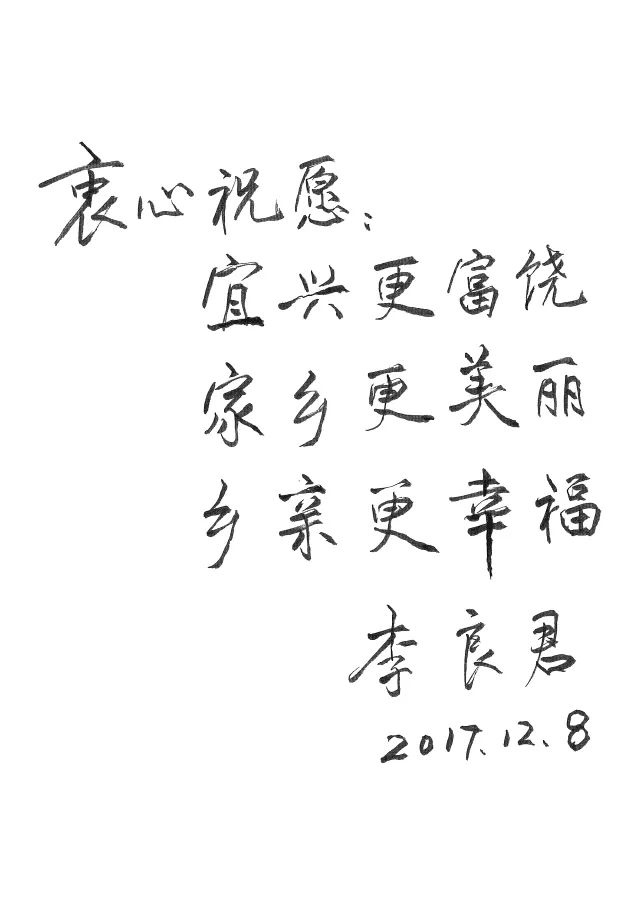 衷心祝愿：
宜兴更富饶
家乡更美丽
乡亲更幸福
李良君
2017.12.8